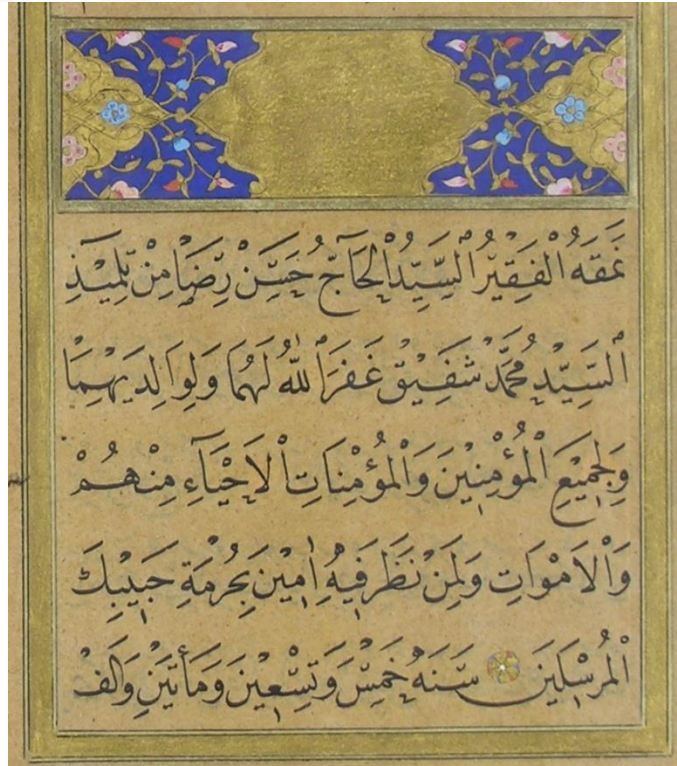 نَمَقَهُ الْفَقِيْرُ السَّيِّدُ الْحَآجّ حُسَيْن رِضَا مِنْ تِلْمِيْذِ
السَّيِّدِ مُحَمَّدْ شَفِيْقْ غَفَرَ اللّٰهُ لَهُمَا وَلِوَالِدَيْهِمَا
وَلِجَمِيْعِ الْمُؤْمِنِيْنَ وَالْمُؤْمِنَاتِ الْاَحْيَآءِ مِنْهُمْ
وَالْاَمْوَاتِ وَلِمَنْ نَظَرَ فِيْهِ اٰمِيْنَ بِحُرْمَةِ حَبِيْبِكَ
الْمُرْسَلِيْنَ سَنَهُ خَمْسٌ وَتِسْعِيْنَ وَمَأتَيْنِ وَاَلَفْ